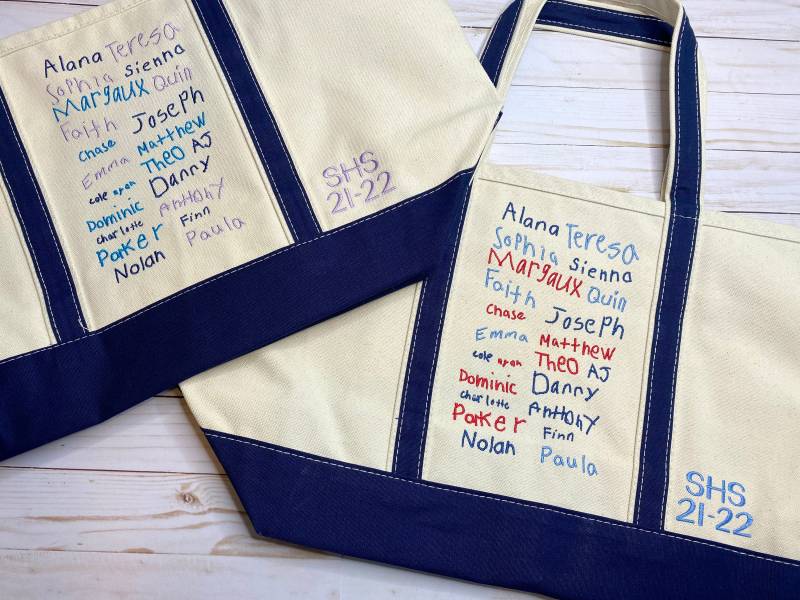 Alana Teresa
Sophia Sienna
Margaux Quin
Faith Joseph
Chase Matthew
Emma Theo AJ
cole Danny
Dominic Anthony
charlotte Finn
Parker Paula
Nolan
SHS
21-22
Alana Teresa
Sophia Sienna
Margaux Quin
Faith Joseph
Chase Matthew
Emma Theo AJ
cole Danny
Dominic AntHony
charlotte Finn
Parker Paula
Nolan
SHS
21-22